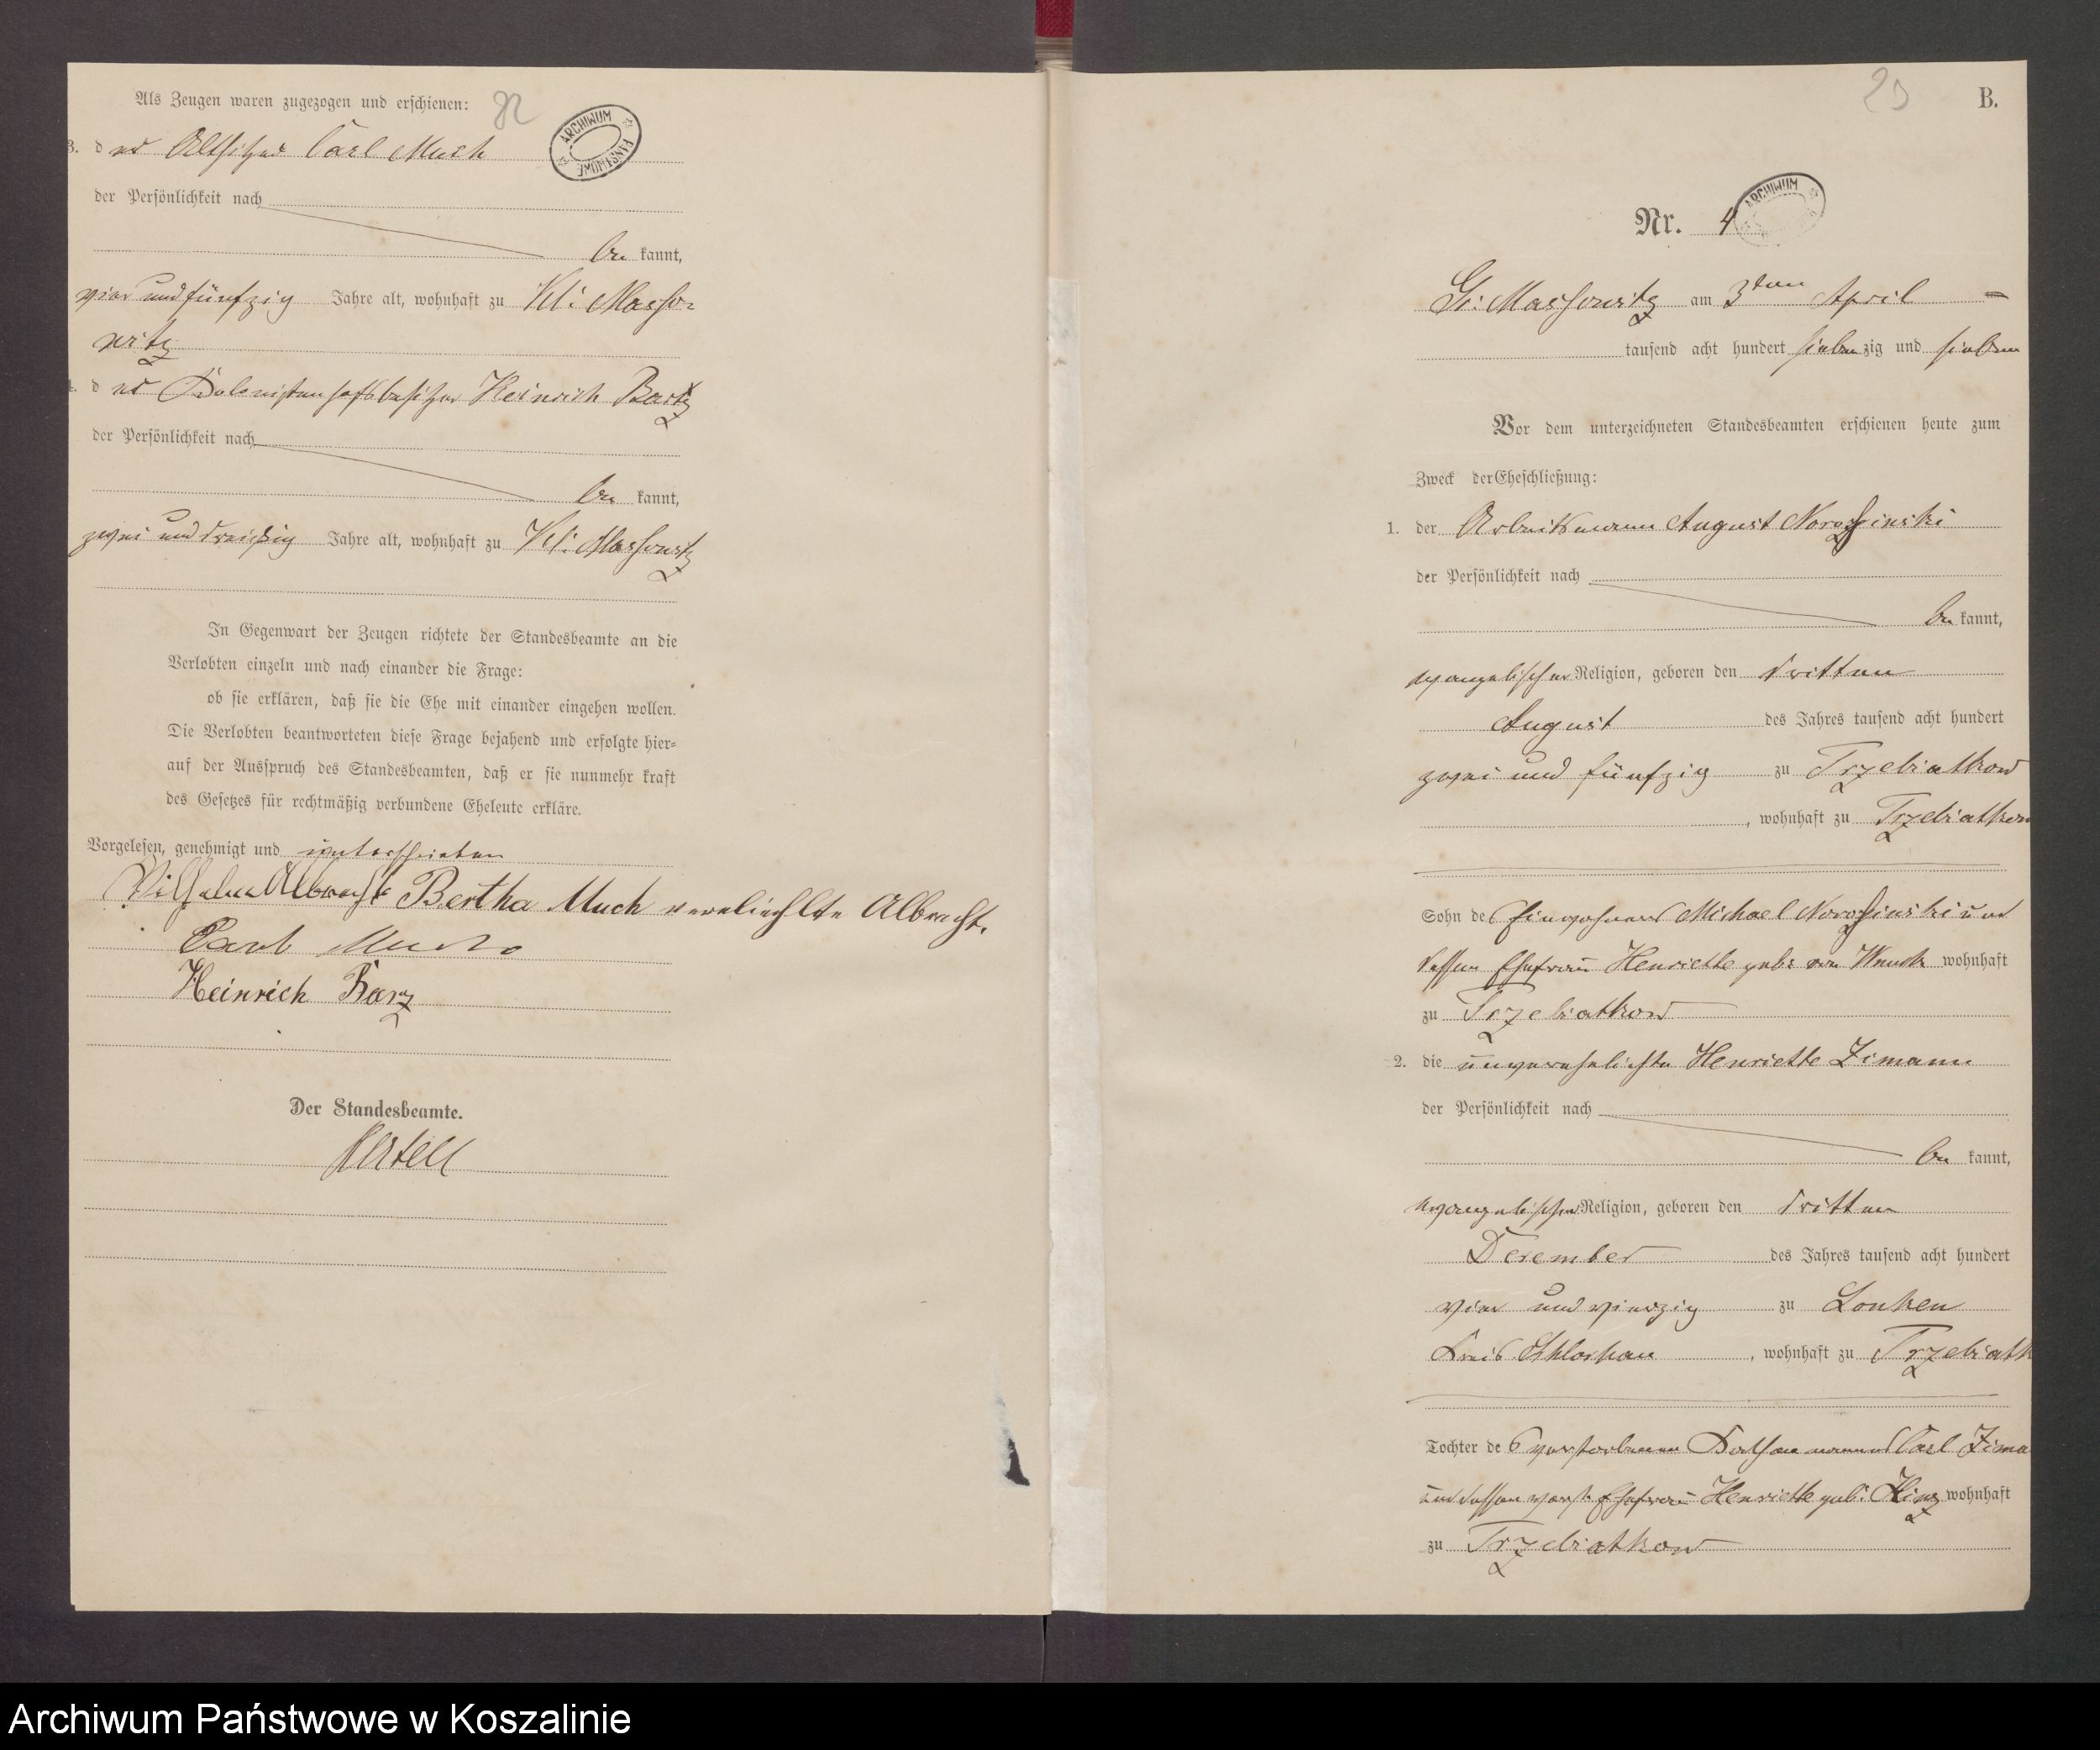 Als Zeugen waren zugezogen und erschienen:
82
ARCHIWUM
3. der Altsitzer Carl Much
der Persönlichkeit nach
be kannt,
vier und fünfzig Jahre alt, wohnhaft zu Kl: Masso-
witz
4. der Kolonistenhofsbesitzer Heinrich Bartz
der Persönlichkeit nach
be kannt,
zwei und dreißig Jahre alt, wohnhaft zu Kl: Massowitz
In Gegenwart der Zeugen richtete der Standesbeamte an die
Verlobten einzeln und nach einander die Frage:
ob sie erklären, daß sie die Ehe mit einander eingehen wollen.
Die Verlobten beantworteten diese Frage bejahend und erfolgte hier-
auf der Ausspruch des Standesbeamten, daß er sie nunmehr kraft
des Gesetzes für rechtmäßig verbundene Eheleute erkläre.
Vorgelesen, genehmigt und unterschrieben
Wilhelm Albrecht Bertha Much verehlichte Albrecht.
Carl Much
Heinrich Barz
Der Standesbeamte.
B.
Nr. 4
ARCHIWUM
Gr: Massowitz am 3ten April
tausend acht hundert siebenzig und sieben
Vor dem unterzeichneten Standesbeamten erschienen heute zum
Zweck der Eheschließung:
1. der Arbeitsmann August
der Persönlichkeit nach
be kannt,
evangelischer Religion, geboren den dritten
August des Jahres tausend acht hundert
zwei und fünfzig zu Trzebiatkow
, wohnhaft zu Trzebiatkow
Sohn des Einwohners Michael und
dessen Ehefrau Henriette geb: wohnhaft
zu Trzebiatkow
2. die unverehelichte Henriette Zimann
der Persönlichkeit nach
be kannt,
evangelischer Religion, geboren den dritten
Dezember des Jahres tausend acht hundert
vier und vierzig zu Lonken
Kreis Schlochau, wohnhaft zu Trzebiatk
Tochter des verstorbenen Kathenmannes Carl Zima
und dessen verst. Ehefrau Henriette geb: Hinz wohnhaft
zu Trzebiatkow
Archiwum Państwowe w Koszalinie